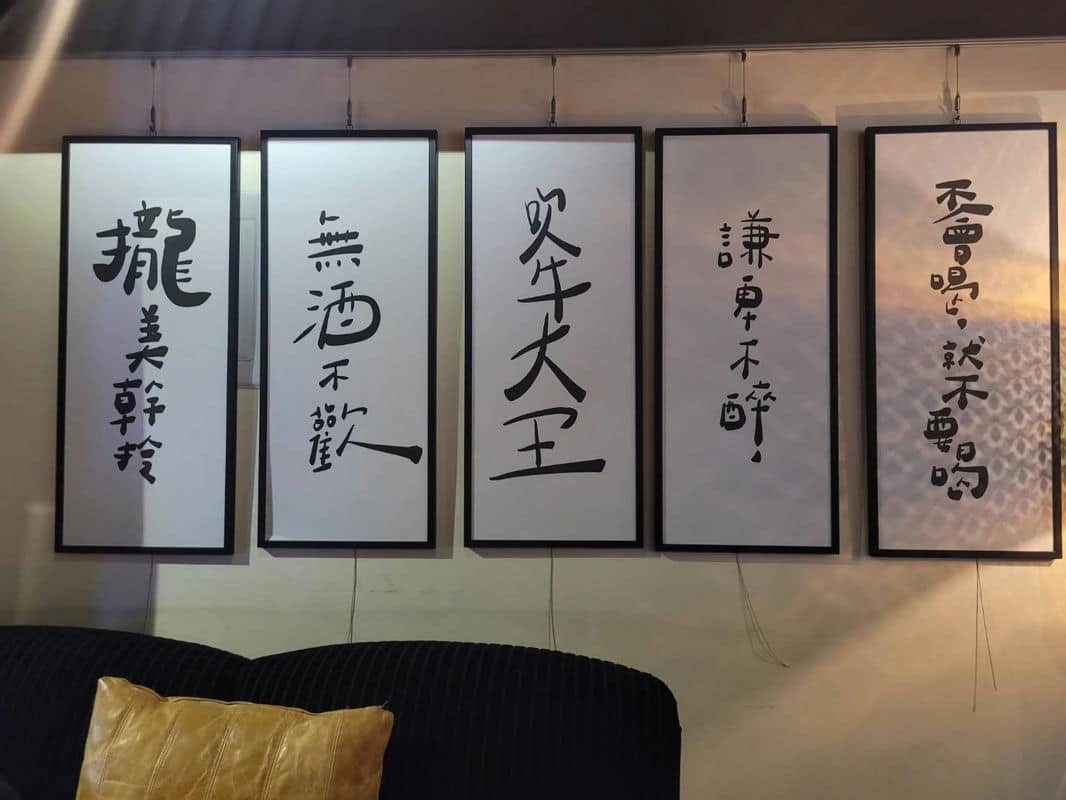 不會喝，就不要喝
謙卑不醉！
吹牛大王
無酒不歡
攏美幹拎